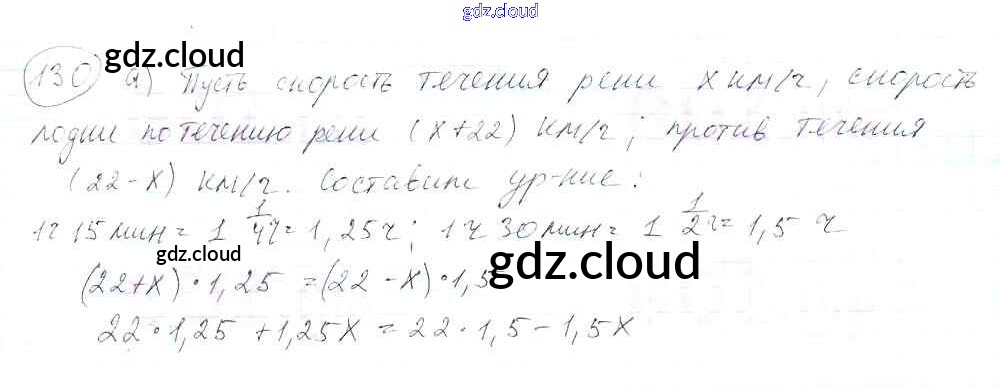 gdz.cloud
gdz.cloud
130 а) Пусть скорость течения реки x км/ч, скорость
лодки по течению реки (x+22) км/ч; против течения
(22-x) км/ч. Составим ур-ние:
1ч 15 мин = 1 1/4 ч = 1,25 ч; 1 ч 30 мин = 1 1/2 ч = 1,5 ч
gdz.cloud
gdz.cloud
(22+x)·1,25 = (22-x)·1,5
22·1,25 + 1,25x = 22·1,5 - 1,5x
gdz.cloud